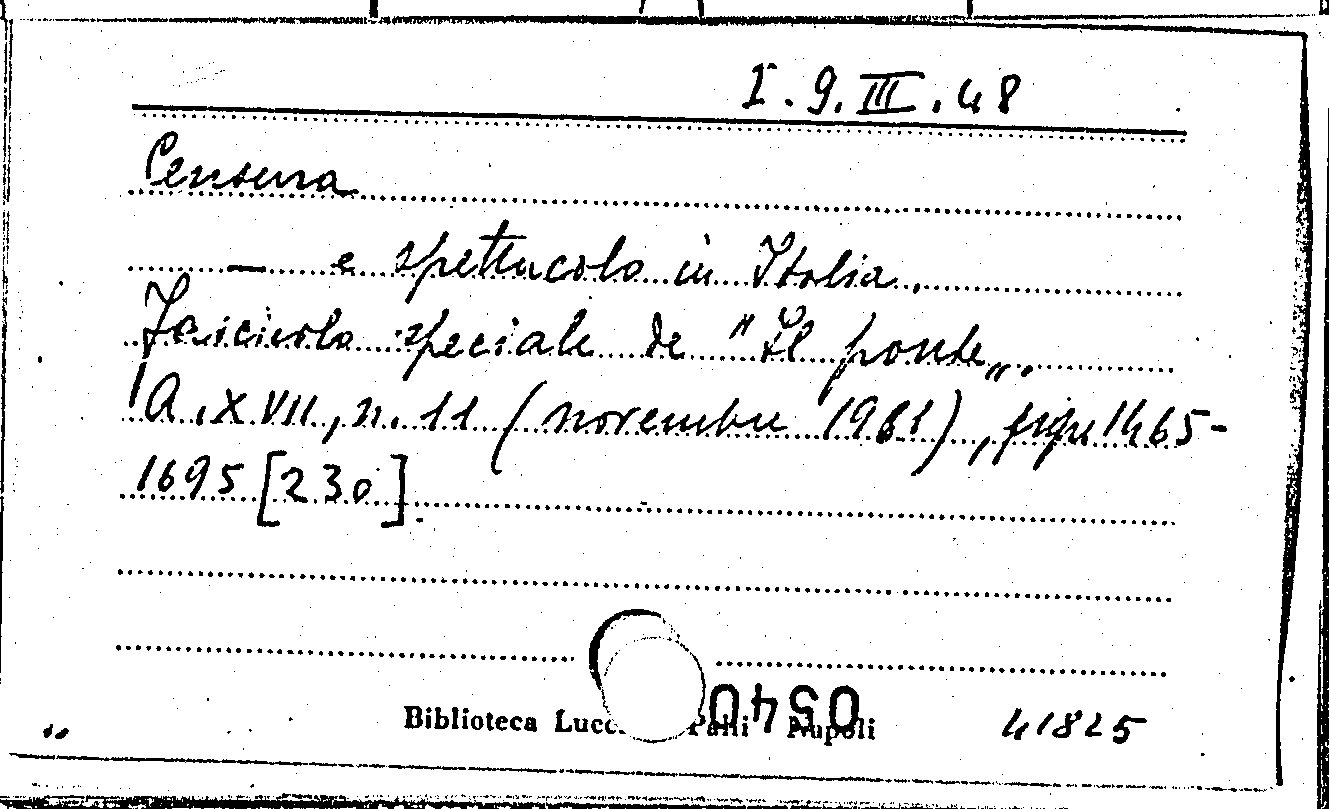 I.9.III.48
Censura
— e spettacolo in Italia.
Fascicolo speciale de "Il ponte„.
A.XVII, n. 11 (novembre 1961), pagg. 1465-
1695 [230].
Biblioteca Palli Napoli 41825
0540